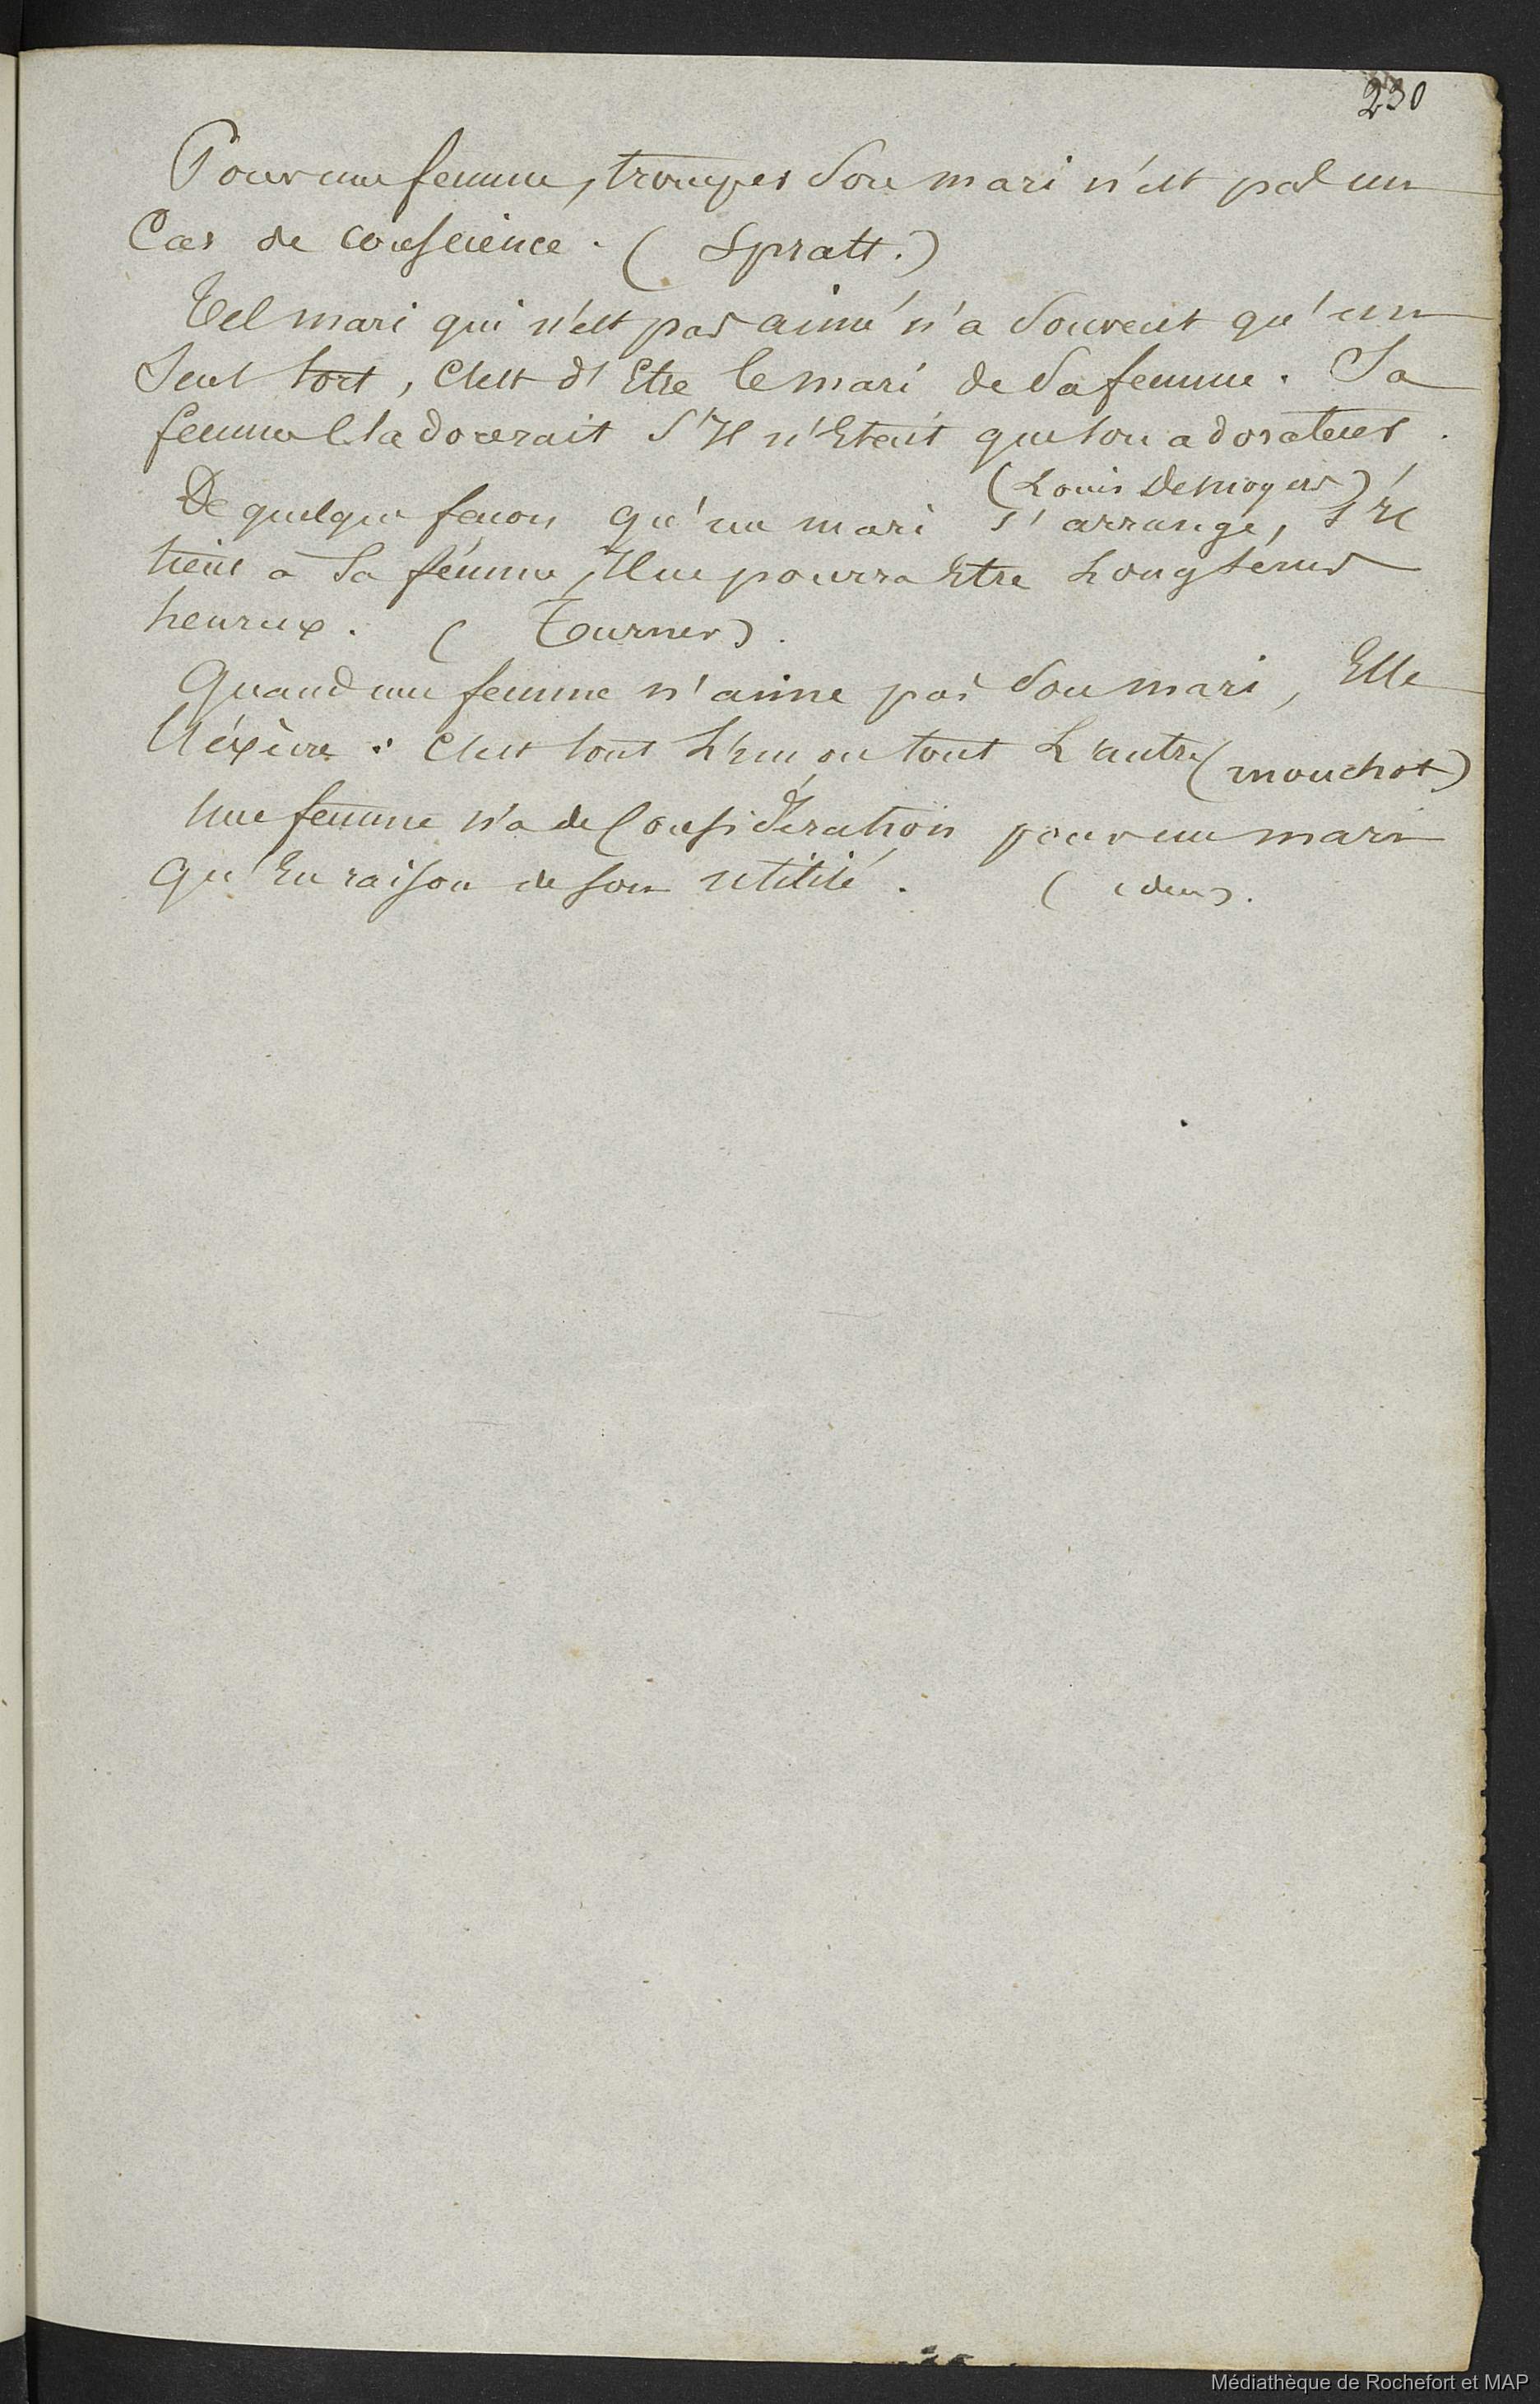 230
Pour une femme, tromper son mari n'est pas un
Cas de conscience. (Spratt.)
Tel mari qui n'est pas aimé n'a souvent qu'un
seul tort, c'est d'Etre le mari de sa femme. Sa
femme l'adorerait s'Il n'Etait que son adorateur.
(Louis Desnoyers)
De quelque façon qu'un mari s'arrange, s'Il
tient a sa femme, Il ne pourra Etre Longtems
heureux. (Turner).
Quand une femme n'aime pas son mari, Elle
l'éxècre : c'est tout L'un ou tout L'autre (mouchot)
Une femme n'a de Considération pour un mari
qu'En raison de son utilité. (idem).
Médiathèque de Rochefort et MAP